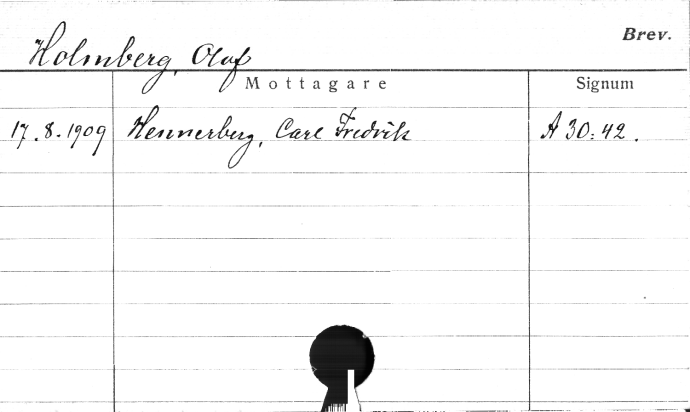 Brev.
Holmberg, Olof
Mottagare Signum
17.8.1909 Hennerberg, Carl Fredrik A 30:42.